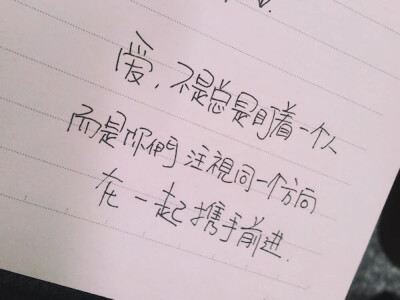 爱，不是总是盯着一个人
而是你們注視同一个方向
在一起携手前进.